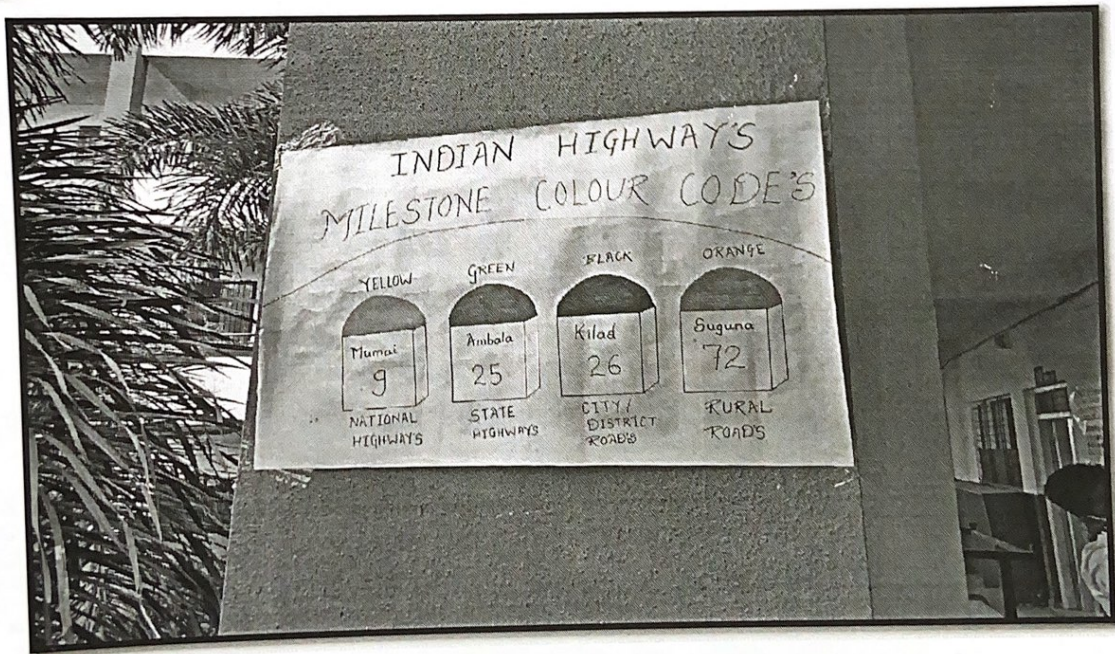 INDIAN HIGHWAY'S
MILESTONE COLOUR CODE'S
YELLOW
Mumai
9
NATIONAL
HIGHWAYS
GREEN
Ambala
25
STATE
HIGHWAYS
BLACK
Kilad
26
CITY/
DISTRICT
ROAD'S
ORANGE
Suguna
72
RURAL
ROAD'S